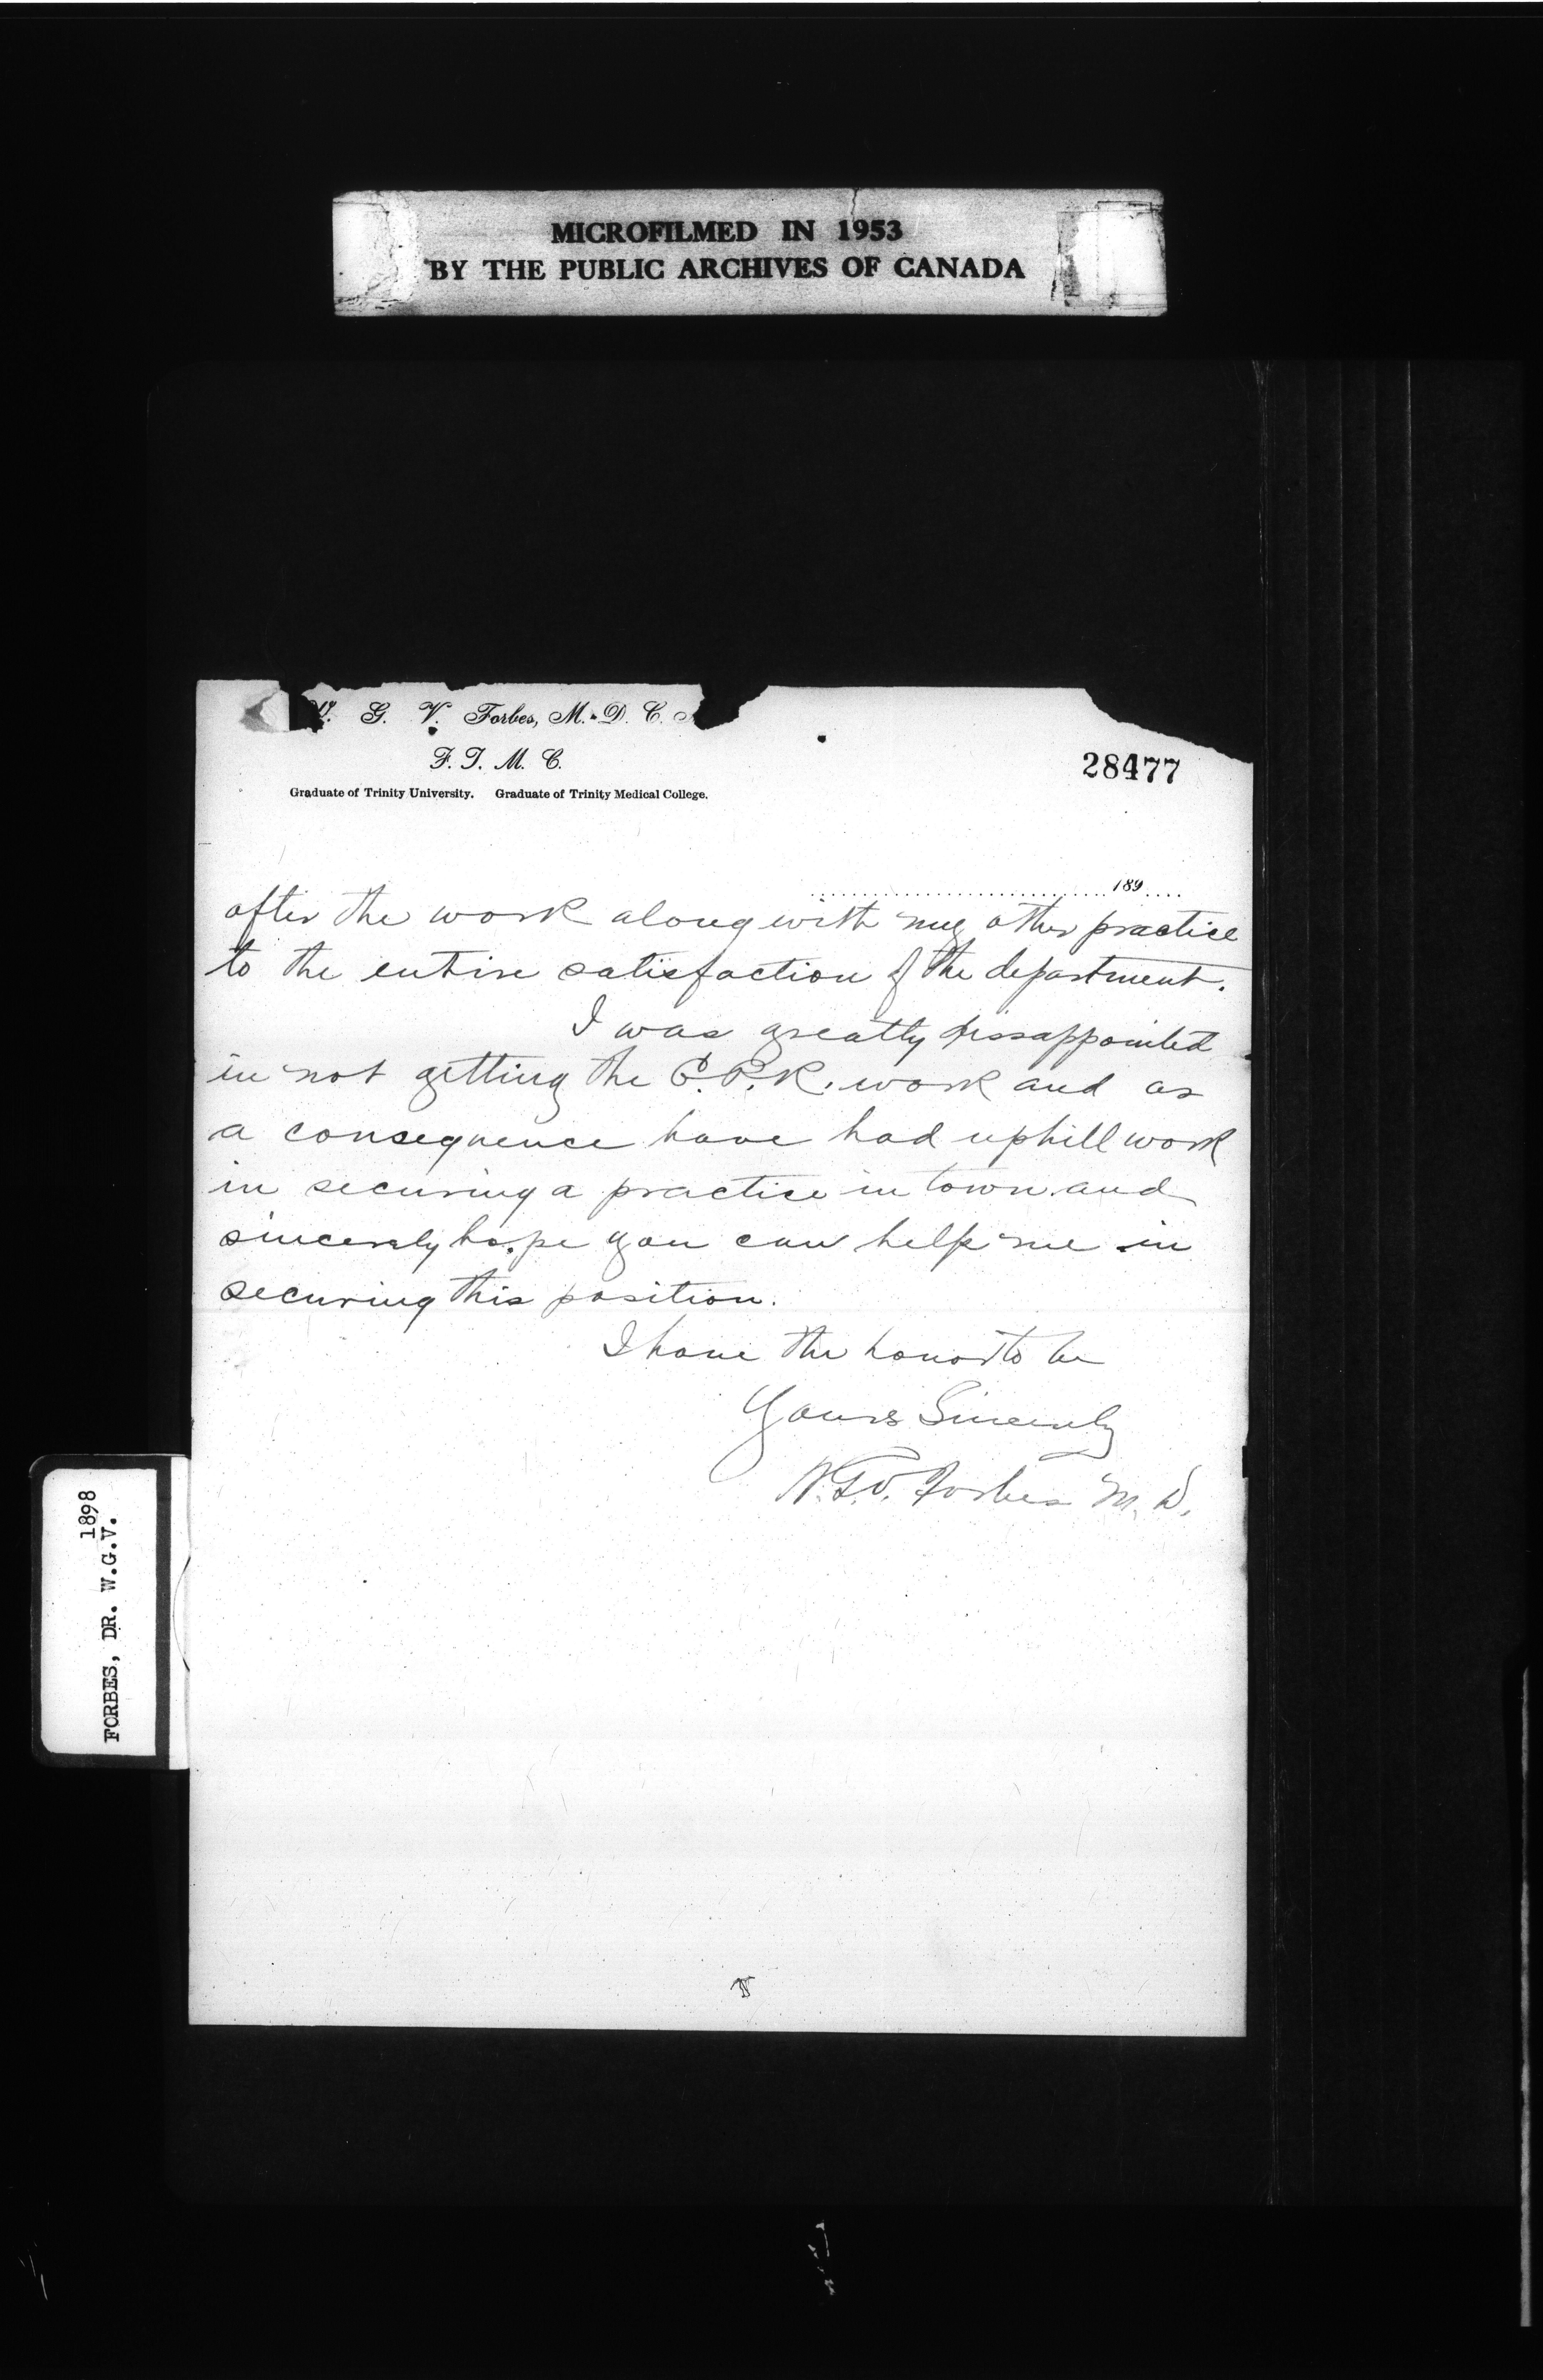 MICROFILMED IN 1953
BY THE PUBLIC ARCHIVES OF CANADA
G. V. Forbes, M. D. C.
F. T. M. C.
28477
Graduate of Trinity University. Graduate of Trinity Medical College.
189
after the work along with my other practice
to the entire satisfaction of the department.
I was greatly dissappointed
in not getting the C.P.R. work and as
a consequence have had uphill work
in securing a practice in town and
sincerely hope you can help me in
securing this position.
I have the honor to be
Yours Sincerely
W.G.V. Forbes M.D.
FORBES, DR. W.G.V.
1898